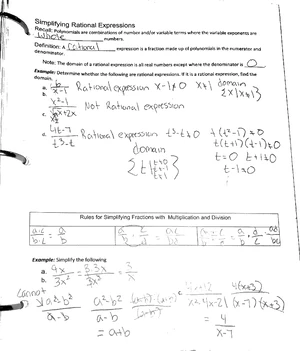 Simplifying Rational Expressions
Recall: Polynomials are combinations of number and/or variable terms where the variable exponents are
Whole numbers.
Definition: A rational expression is a fraction made up of polynomials in the numerator and
denominator.
Note: The domain of a rational expression is all real numbers except where the denominator is 0
Example: Determine whether the following are rational expressions. If it is a rational expression, find the
domain.
a. 6/x-1 Rational expression x-1≠0 x≠1 domain {x|x≠1}
b. Not Rational expression
c. 4t-7/t³-t Rational expression t³-t≠0 t(t²-1)≠0
t(t+1)(t-1)≠0
domain t≠0 t+1≠0
t-1≠0
Rules for Simplifying Fractions with Multiplication and Division
a·c/b·c = a/b
Example: Simplify the following
a. 9x/3x² = 3·3x/3x² = 3/x
b.
cannot
a²-b²/a-b a²-b²/a-b
= a+b
c. 4x+12 4(x+3)
(x-7)(x+3)
= 4/x-7